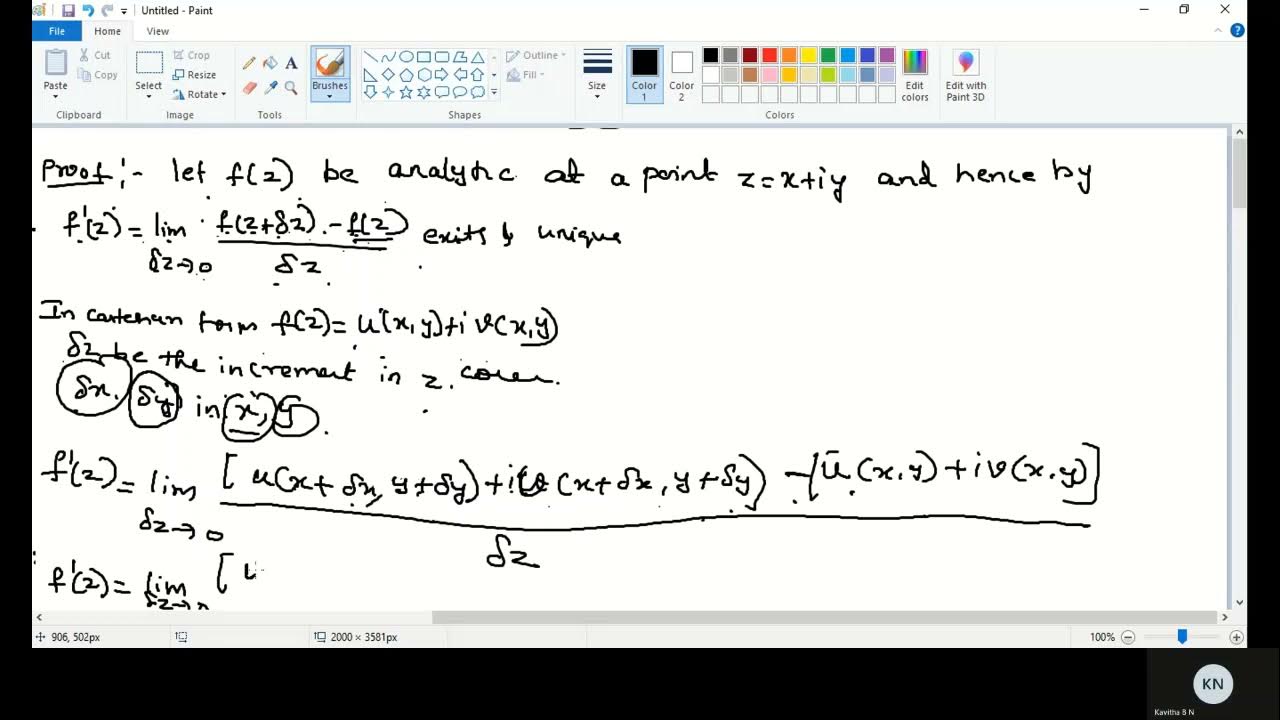 Untitled - Paint
File Home View
Paste Cut Copy Select Crop Resize Rotate Brushes Outline Fill Size Color 1 Color 2 Edit colors Edit with Paint 3D
Clipboard Image Tools Shapes Colors
Proof :- let f(z) be analytic at a point z=x+iy and hence by
f'(z) = lim δz→0 f(z+δz) - f(z) / δz exits & unique
In cartesian form f(z) = u(x,y)+i v(x,y)
δz be the increment in z.
δx, δy in x, y.
f'(z) = lim δz→0 [u(x+δx, y+δy)+i v(x+δx, y+δy)] - [u(x,y)+i v(x,y)] / δz
f'(z) = lim δz→0 [u
906, 502px 2000 × 3581px 100%
KN
Kavitha B N